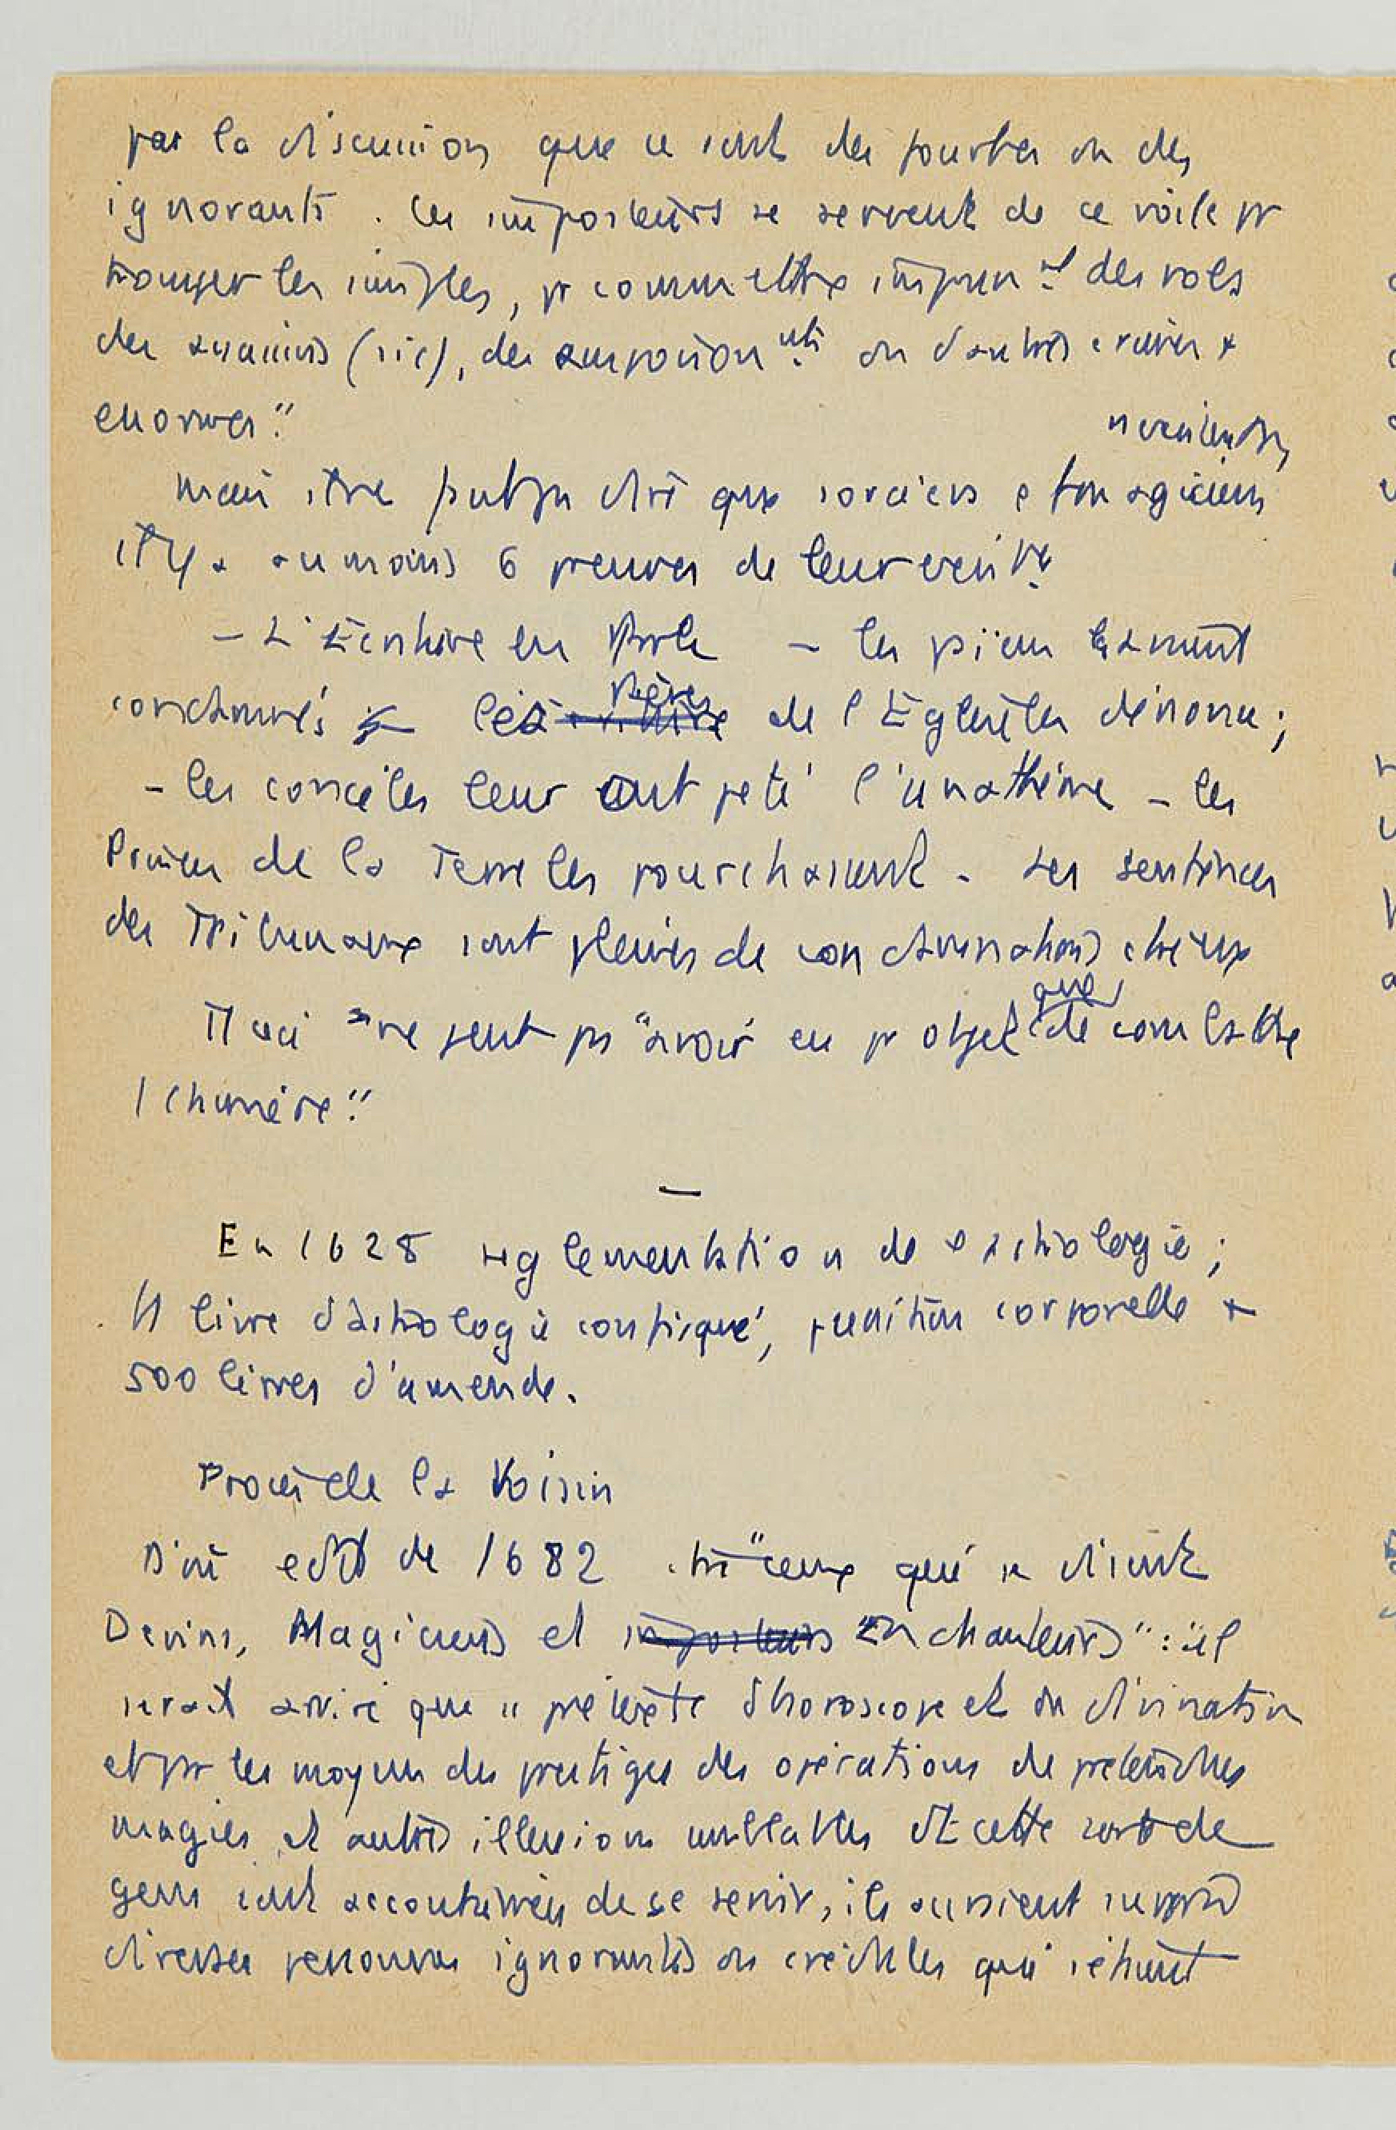 par la discussion que ce sont des fourbes ou des
ignorants. Les imposteurs se servent de ce voile pr
tromper les simples, pr commettre impun.nt des vols
des (sic), des empoisonn.nts ou d'autres crimes
enormes."
que sorciers magiciens
au moins 6 preuves de leur
- L'Ecriture en parle - les païens les
condamnés les Pères de l'Eglise les dénonc;
- les conciles leur ont jeté l'anathème - les
Princes de la Terre les pourchassent - Les sentences
des Tribunaux sont pleines de condamnations
ne peut ps "avoir eu pr objet que de combattre
1 chimère."
—
En 1628 reglementation de astrologie;
livre d'astrologie confisqué, punition corporelle +
500 livres d'amende.
Procès de la Voisin
D'où edit de 1682 "ceux qui se disent
Devins, Magiciens et Enchanteurs" : "il
serait que prétexte d'horoscope et de divination
et pr les moyens des prestiges des opérations de prétendues
magies et autres illusions semblables dt cette sorte de
gens sont accoutumés de se servir, ils auraient surpris
diverses personnes ignorantes ou crédules qui s'étaient